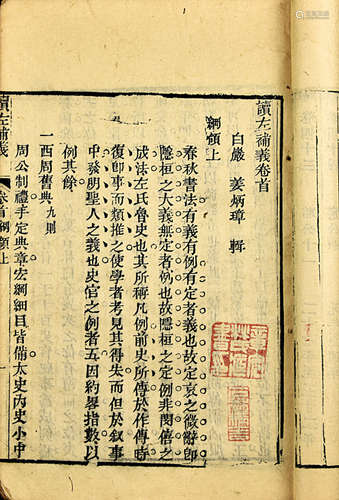 讀左補義卷首
白巖 姜炳璋 輯
綱領上
春秋書法有義有例有定者義也故定哀之微辭即
隱桓之大義無定者例也故隱桓之定例非閔僖之
成法左氏魯史也其所稱凡例前史所傳於作傳時
復即事而類推之使學者考見其得失而但於叙事
中發明聖人之義也史官之例者五因約畧指數以
例其餘
一西周舊典九則
周公制禮手定典章宏綱細目皆備太史内史小中
讀左補義
卷首 綱領上